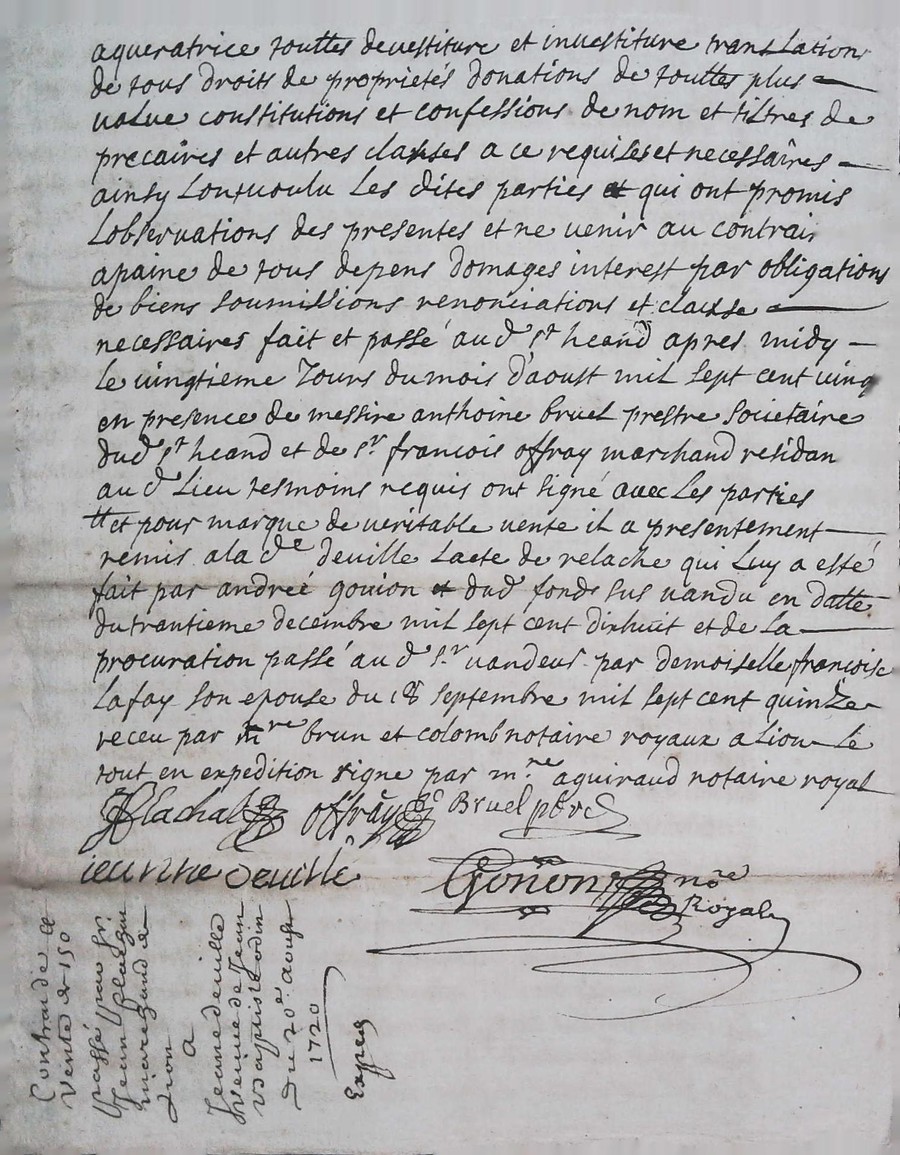 aqueratrice touttes devestiture et investiture translation
de tous droits de proprietés donations de touttes plus
value constitutions et confessions de nom et tiltres de
precaires et autres clauses a ce requises et necessaires
ainsy Lontvoulu Les dites parties qui ont promis
Lobservations des presentes et ne venir au contrair
apaine de tous depens domages interest par obligations
de biens soumissions renonciations et clause
necessaires fait et passé aud st heand apres midy
le vingtieme Jours du mois d'aoust mil sept cent vingt
en presence de messire anthoine bruel prestre societaire
dud st heand et de sr francois offray marchand residan
au d Lieu tesmoins requis ont signé avec Les parties
et pour marque de veritable vente il a presentement
remis ala de deville Lacte de relache qui Luy a esté
fait par andreé gouion dud fonds sus vandu en datte
du trantieme decembre mil sept cent dixhuit et de La
procuration passé au d sr vandeur par demoiselle francoise
Lafay son epouse du 18 septembre mil sept cent quinze
receu par mre brun et colomb notaire royaux a Lion Le
tout en expedition signe par mre aguiraud notaire royal
flachat offray Bruel pbre
jeanne deville
Gonon nore
Royal
Contrat de
Vente de 150
passé par sr
Jean flachat
marchand de
Lion
a
Jeanne deville
veuve de Jean
Baptiste odin
Du 20e aoust
1720
Exped